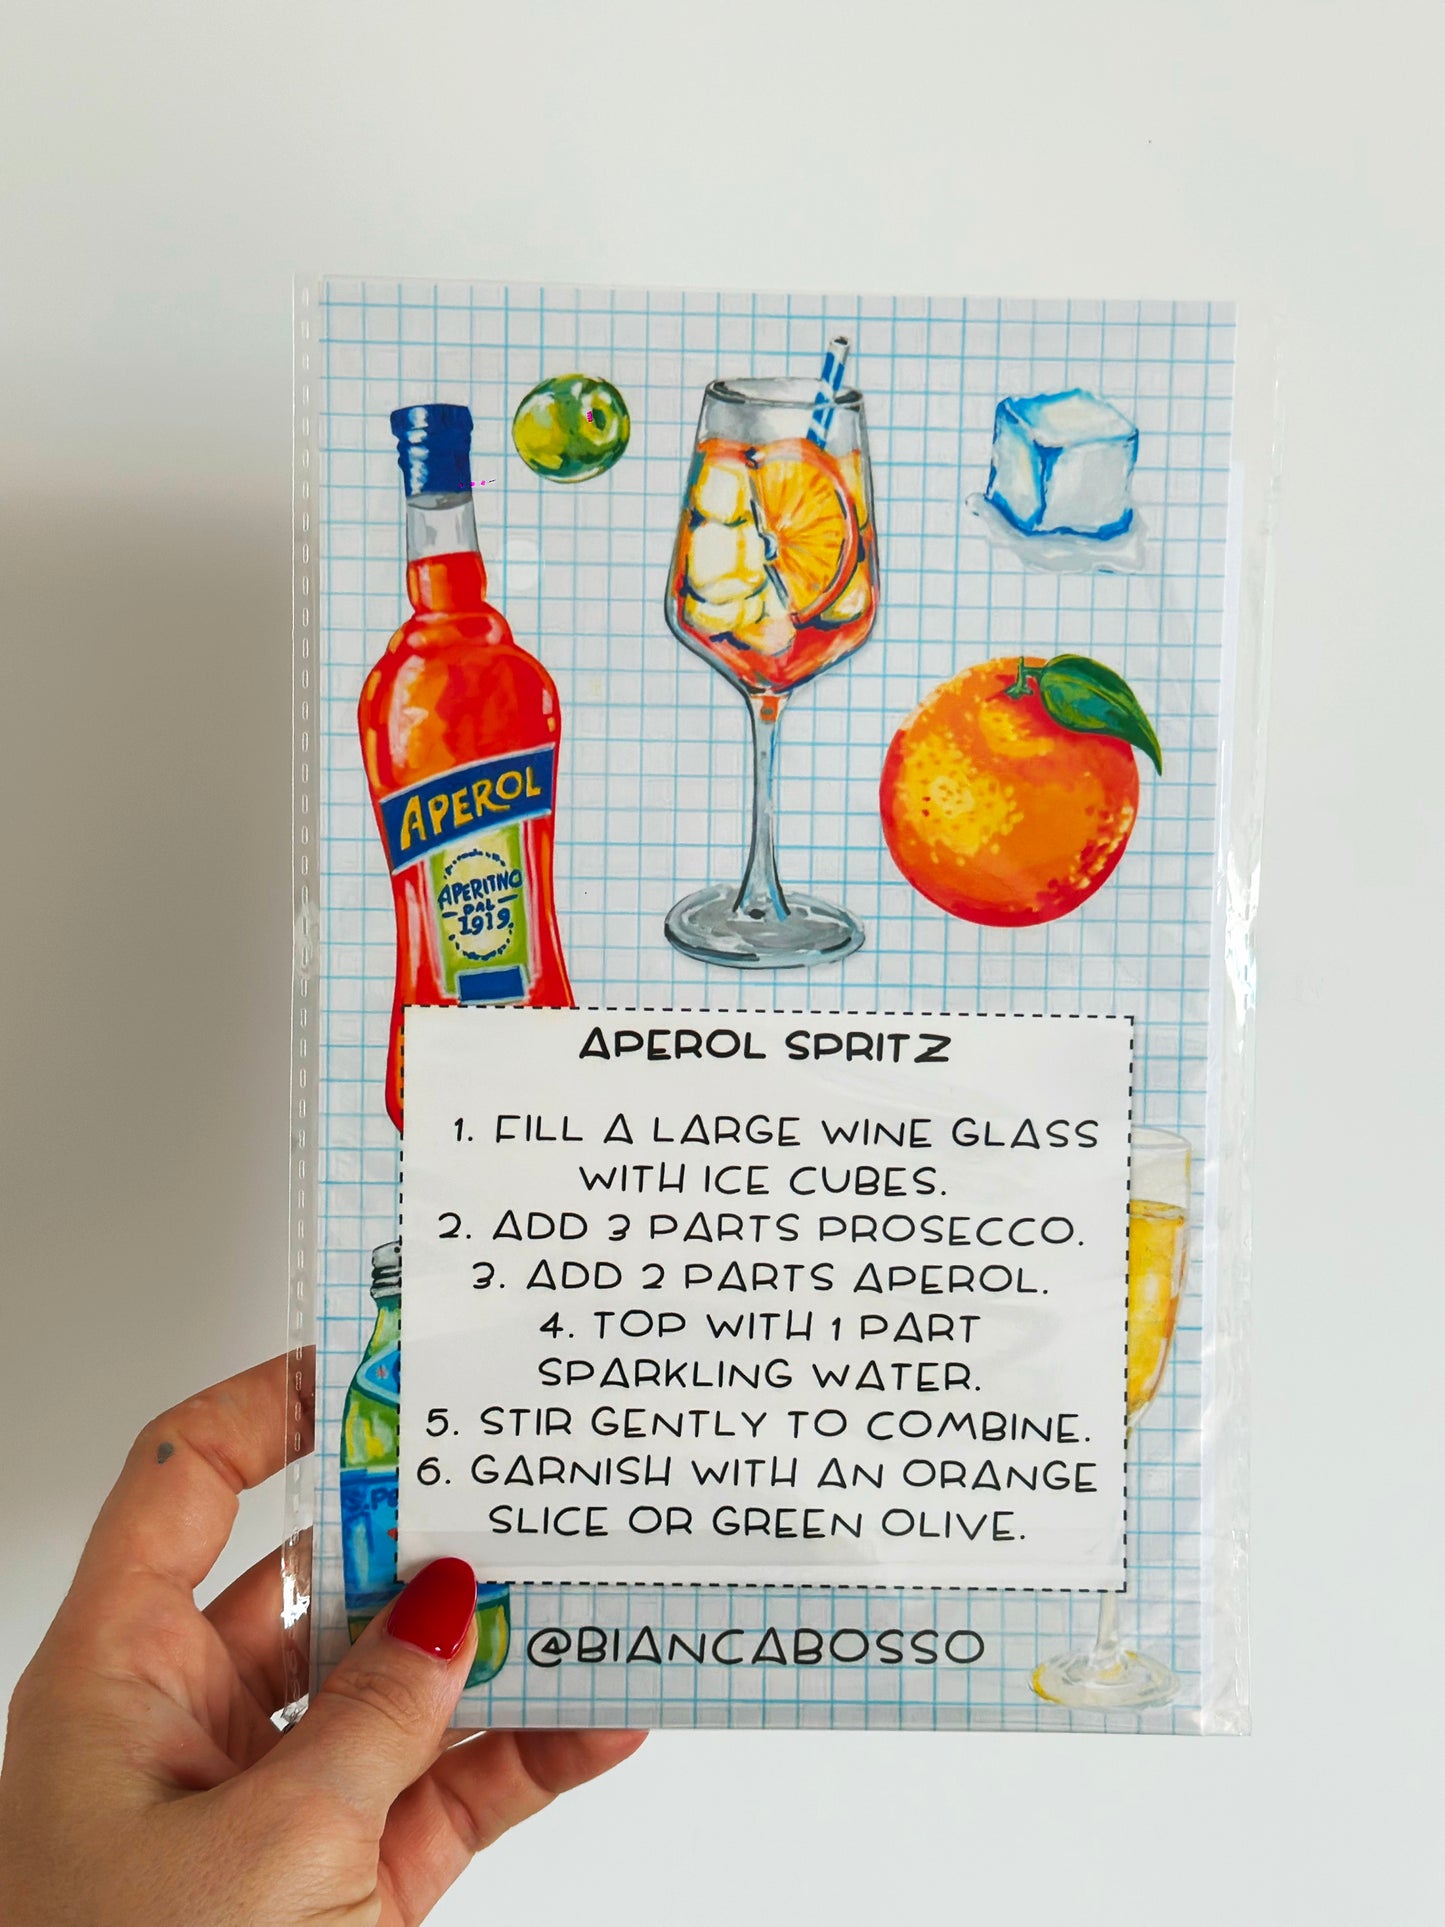 APEROL
APERITNO
DAL
1919
APEROL SPRITZ
1. FILL A LARGE WINE GLASS
WITH ICE CUBES.
2. ADD 3 PARTS PROSECCO.
3. ADD 2 PARTS APEROL.
4. TOP WITH 1 PART
SPARKLING WATER.
5. STIR GENTLY TO COMBINE.
6. GARNISH WITH AN ORANGE
SLICE OR GREEN OLIVE.
S.PE
@BIANCABOSSO